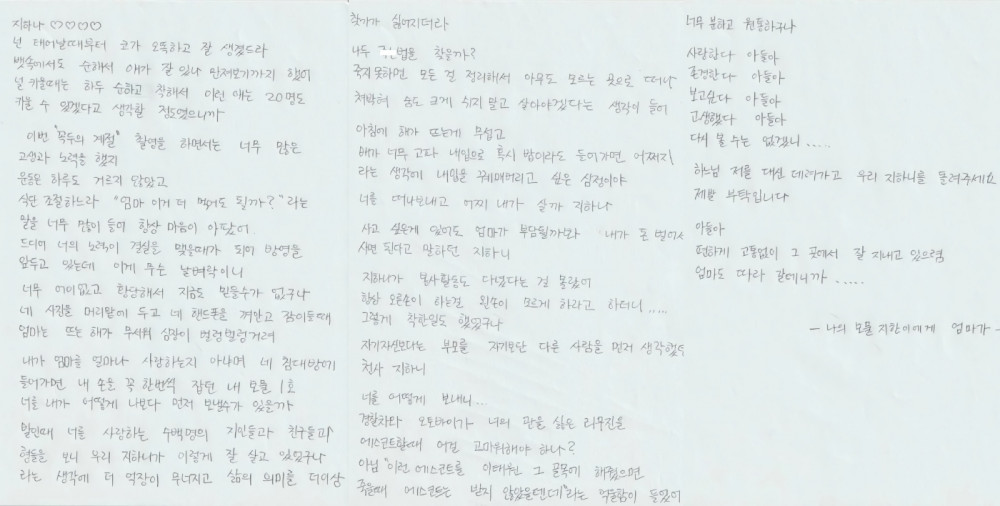 지하나 ♡♡♡♡
넌 태어날때부터 코가 오뚝하고 잘 생겼드라
뱃속에서도 순해서 얘가 잘 있나 만져보기까지 했어
널 키울때는 하두 순하고 착해서 이런 애는 20명도
키울 수 있겠다고 생각할 정도였으니까
이번 "꼭두의 계절" 촬영을 하면서는 너무 많은
고생과 노력을 했지
운동은 하루도 거르지 않았고
식단 조절하느라 "엄마 이거 더 먹어도 될까?"라는
말을 너무 많이 들어 항상 마음이 아팠어
드디어 너의 노력이 결실을 맺을때가 되어 방영을
앞두고 있는데 이게 무슨 날벼락이니
너무 어이없고 황당해서 지금도 믿을수가 없구나
네 사진을 머리맡에 두고 네 핸드폰을 껴안고 잠이들때
엄마는 뜨는 해가 무서워 심장이 벌렁벌렁거려
내가 엄마를 얼마나 사랑하는지 아냐며 네 침대방에
들어가면 내 손을 꼭 한번씩 잡던 내 보물 1호
너를 내가 어떻게 나보다 먼저 보낼수가 있을까
발인때 너를 사랑하는 수백명의 지인들과 친구들과
형들을 보니 우리 지하니가 이렇게 잘 살고 있었구나
라는 생각에 더 억장이 무너지고 삶의 의미를 더이상
찾기가 싫어지더라
나두 법을 찾을까?
죽지못하면 모든 걸 정리해서 아무도 모르는 곳으로 떠나
쳐박혀 숨도 크게 쉬지 말고 살아야겠다는 생각이 들어
아침에 해가 뜨는게 무섭고
배가 너무 고파 내입으로 혹시 밥이라도 들어가면 어쩌지
라는 생각에 내입을 꿰매버리고 싶은 심정이야
너를 떠나보내고 어찌 내가 살까 지하나
사고 싶은게 있어도 엄마가 부담될까봐 내가 돈 벌어서
사면 된다고 말하던 지하니
지하니가 봉사활동도 다녔다는 걸 몰랐어
항상 오른손이 하는걸 왼손이 모르게 하라고 하더니.....
그렇게 착한일도 했었구나
자기자신보다는 부모를 자기보단 다른 사람을 먼저 생각했던
천사 지하니
너를 어떻게 보내니...
경찰차와 오토바이가 너의 관을 실은 리무진을
에스코트할때 이걸 고마워해야 하나?
아님 "이런 에스코트를 이태원 그 골목에 해줬으면
죽을때 에스코트는 받지 않았을텐데"라는 억울함이 들었어
너무 분하고 원통하구나
사랑한다 아들아
존경한다 아들아
보고싶다 아들아
고생했다 아들아
다시 볼 수는 없겠니.....
하느님 저를 대신 데려가고 우리 지하니를 돌려주세요
제발 부탁입니다
아들아
편하게 고통없이 그 곳에서 잘 지내고 있으렴
엄마도 따라 갈테니까.....
- 나의 보물 지한이에게 엄마가 -